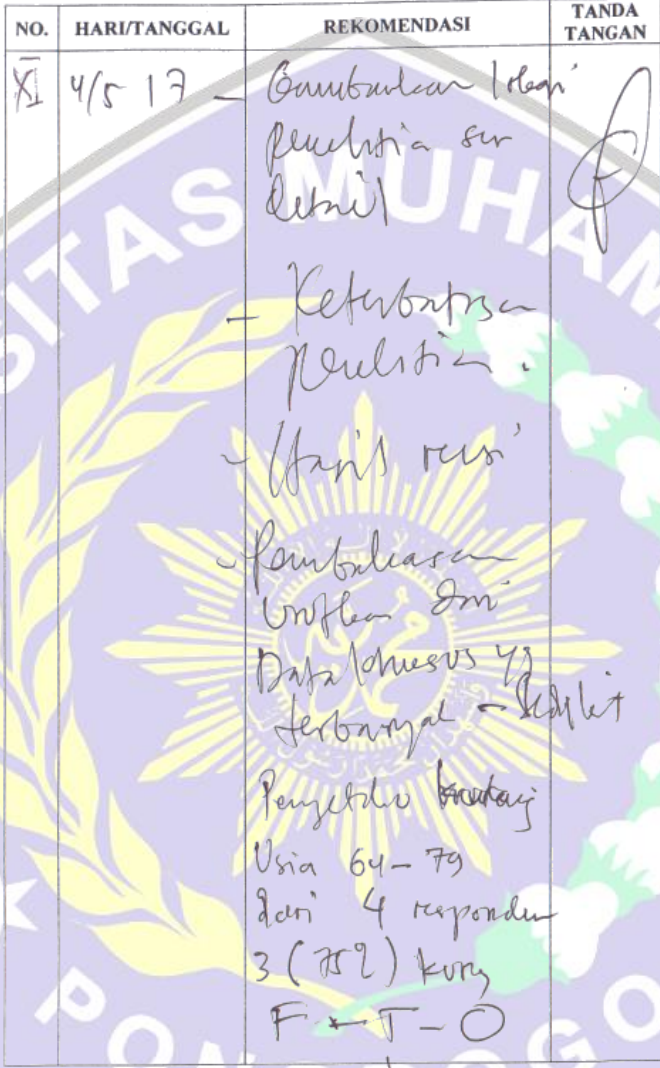 NO. HARI/TANGGAL REKOMENDASI TANDA TANGAN
XI 4/5 17 - Gambarkan lokasi
penelitian scr
detail
- Keterbatasan
penelitian.
- Hasil revisi
- Pembahasan
urutkan dari
Data khusus yg
terbanyak - sedikit
Pengetahu kurang
Usia 64-79
dari 4 responden
3 (75%) kurg
F - T - O
SITAS MUHAM
PONOROGO